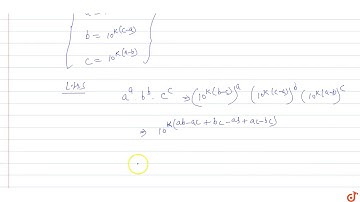 b = 10^{K(c-a)}
c = 10^{K(a-b)}
L.H.S
a^a b^b . c^c ⇒ (10^{K(b-c)})^a (10^{K(c-a)})^b (10^{K(a-b)})^c
⇒ 10^{K(ab-ac+bc-ab+ac-bc)}